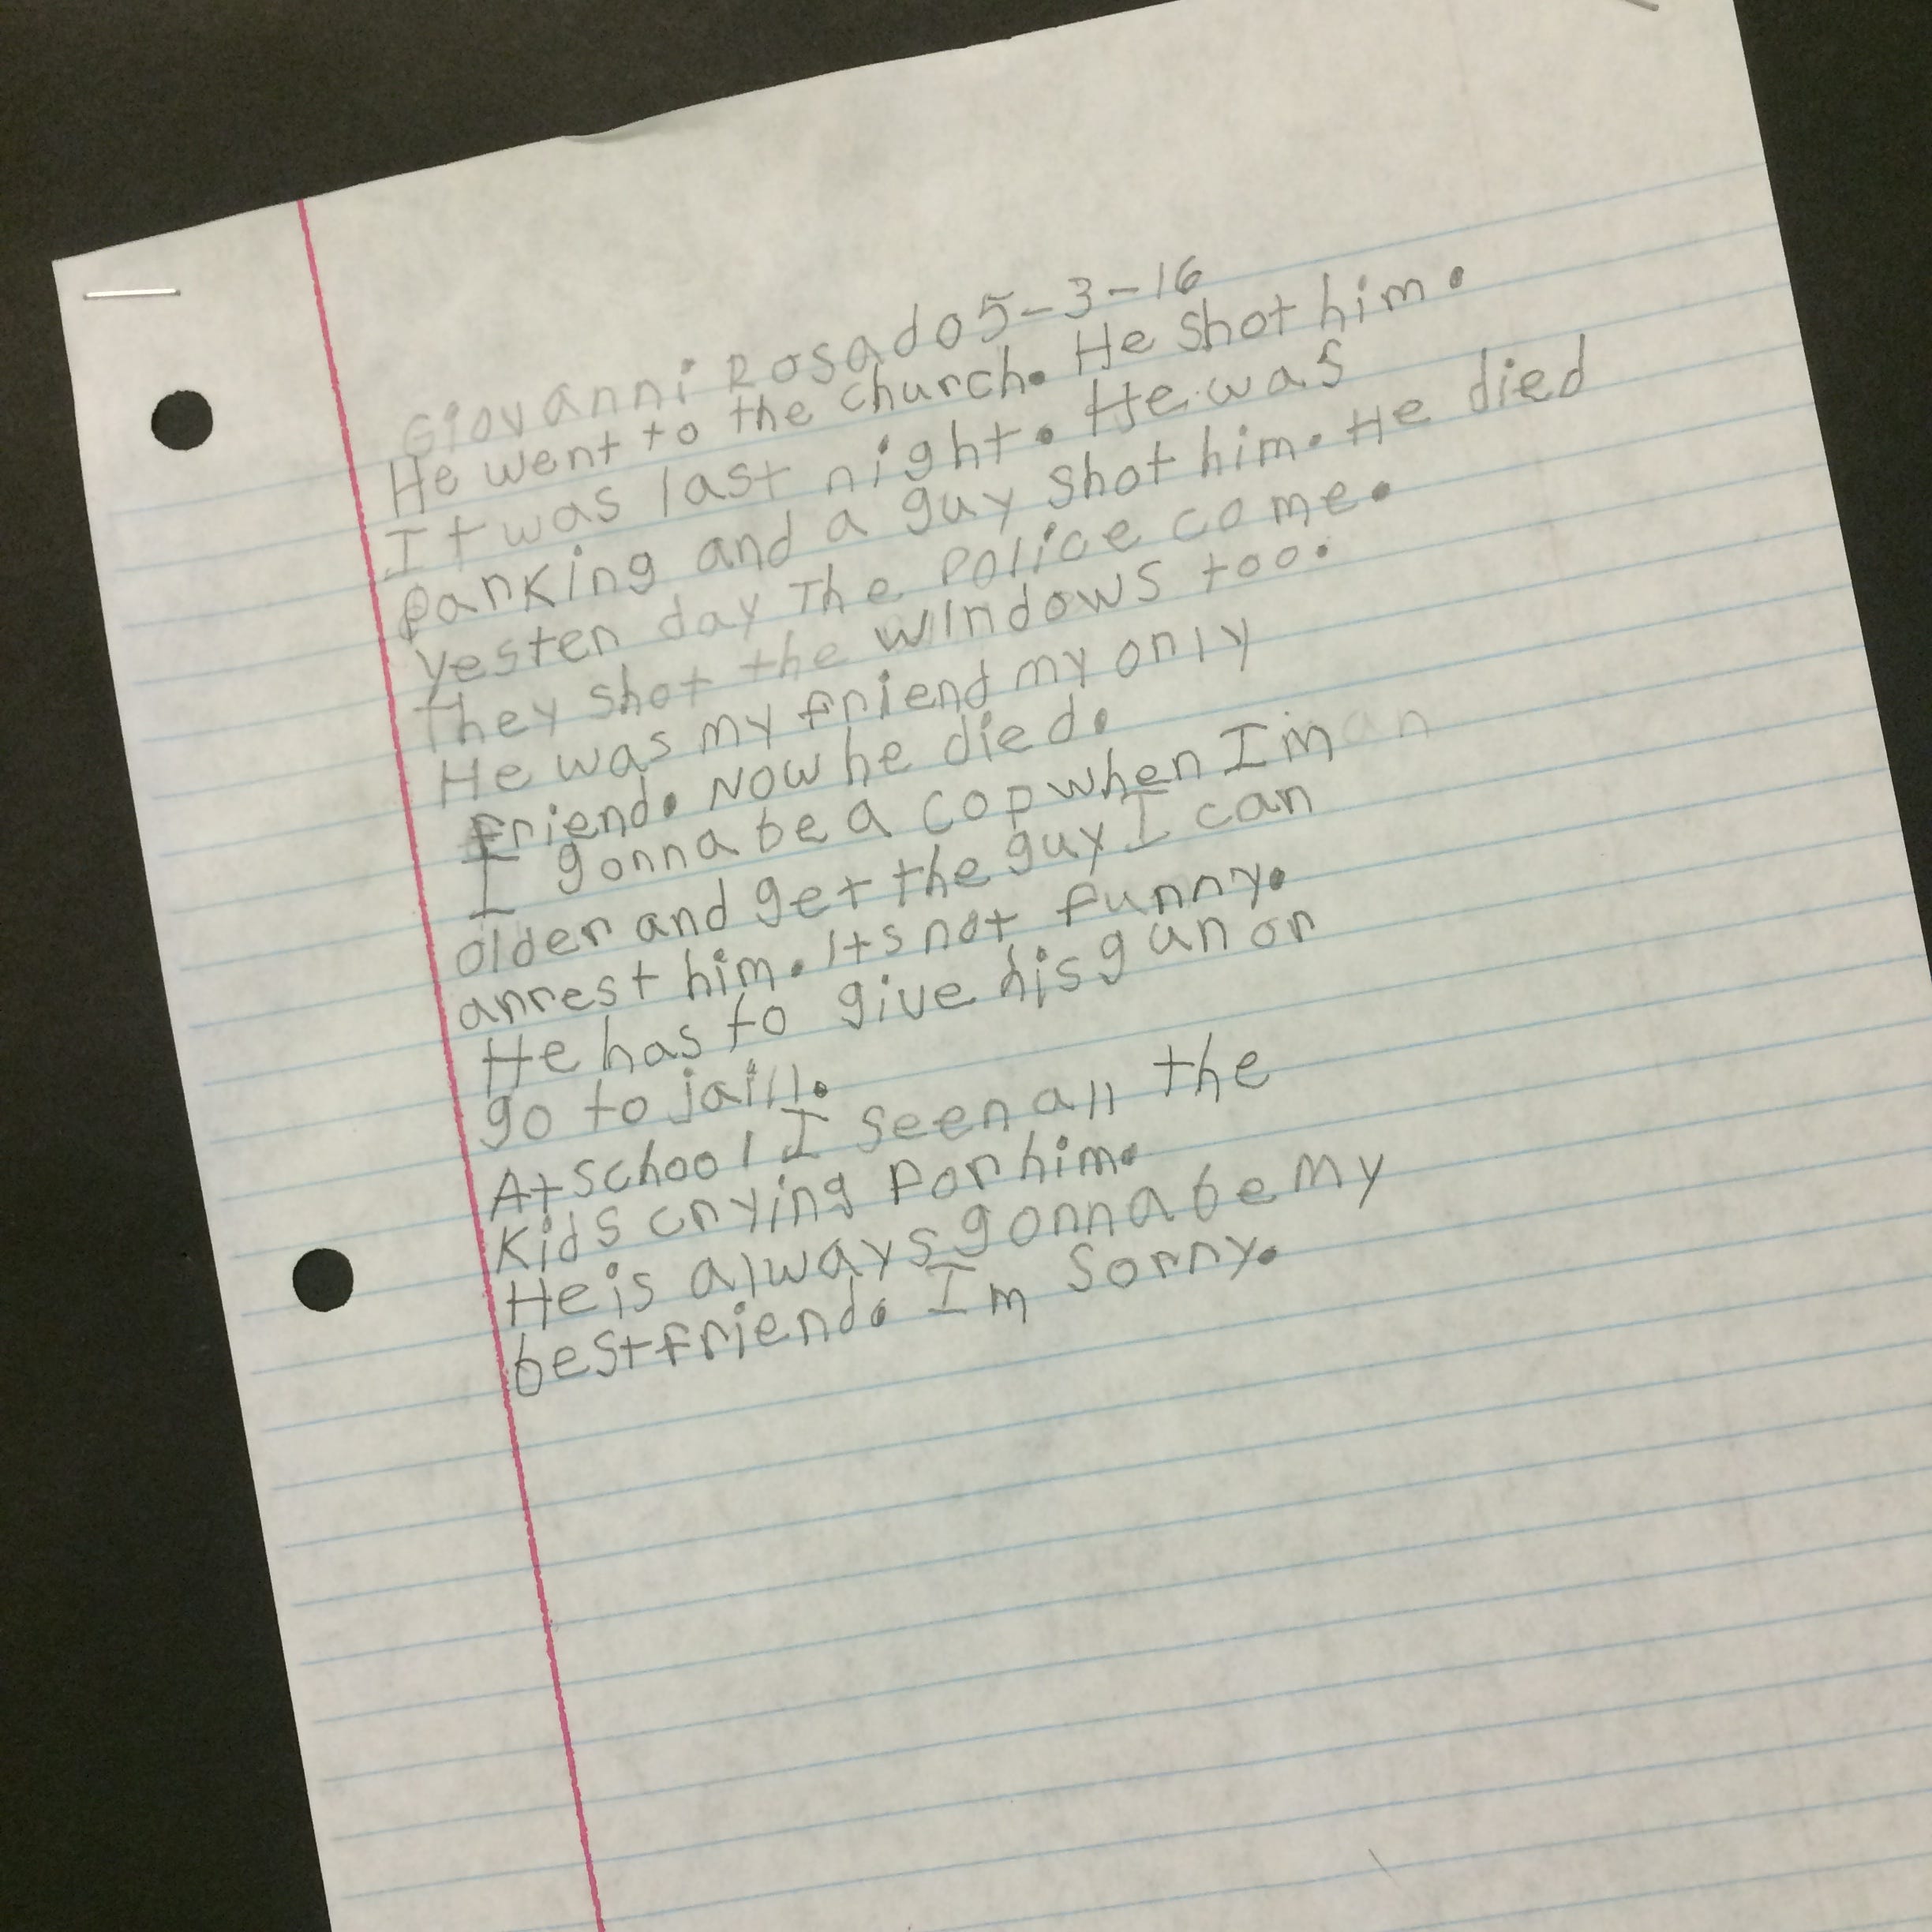 Giovanni Rosado 5-3-16
He went to the church. He shot him.
It was last night. He was
parking and a guy shot him. He died
yester day The police come.
They shot the windows too.
He was my friend my only
friend. Now he died.
I gonna be a cop when Im an
older and get the guy I can
arrest him. Its not funny.
He has to give his gun or
go to jaill.
At school I seen all the
kids crying for him.
He is always gonna be my
best friend. Im sorry.